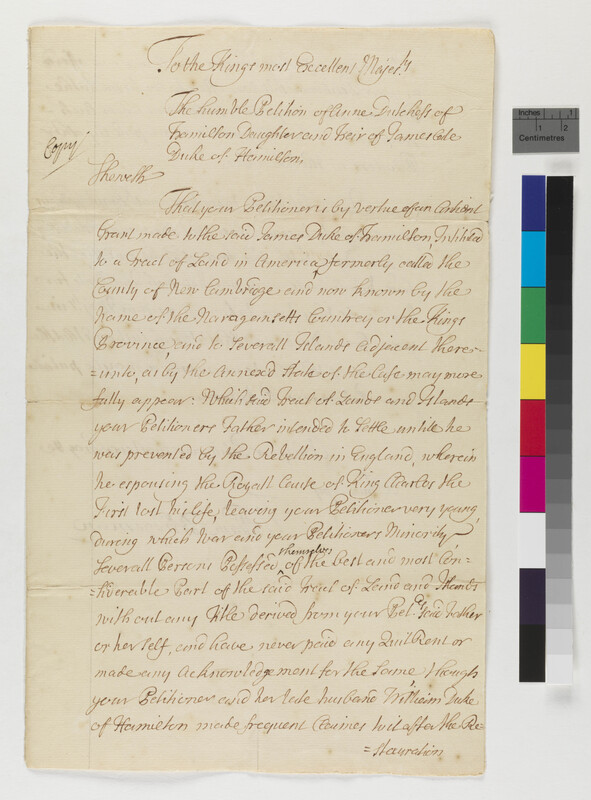 To the Kings most Excellent Majesty
The humble Petition of Anne Dutchess of
Hamilton Daughter and Heir of James late
Duke of Hamilton,
Copy
Sheweth
That your Petitioner is by vertue of an Antient
Grant made to the said James Duke of Hamilton, Intituled
to a Tract of Land in America, formerly called the
County of New Cambridge and now known by the
Name of the Naragansetts Countrey or the Kings
Province, and to Severall Islands adjacent there=
=unto, as by the Annexd State of the Case may more
fully appear: Which said Tract of Lands and Islands
your Petitioners Father intended to Settle untill he
was prevented by the Rebellion in England, wherein
he espousing the Royall Cause of King Charles the
First lost his life, leaving your Petitioner very young,
during which War and your Petitioners Minority
Severall Persons Possessed themselves of the best and most Con=
=siderable Part of the said Tract of Land and Islands
without any Title derived from your Petrs said Father
or her self, and have never paid any Quit Rent or
made any Acknowledgement for the Same though
your Petitioner and her late husband William Duke
of Hamilton made frequent Claimes to it after the Re=
=stauration
Inches 1
1 2
Centimetres